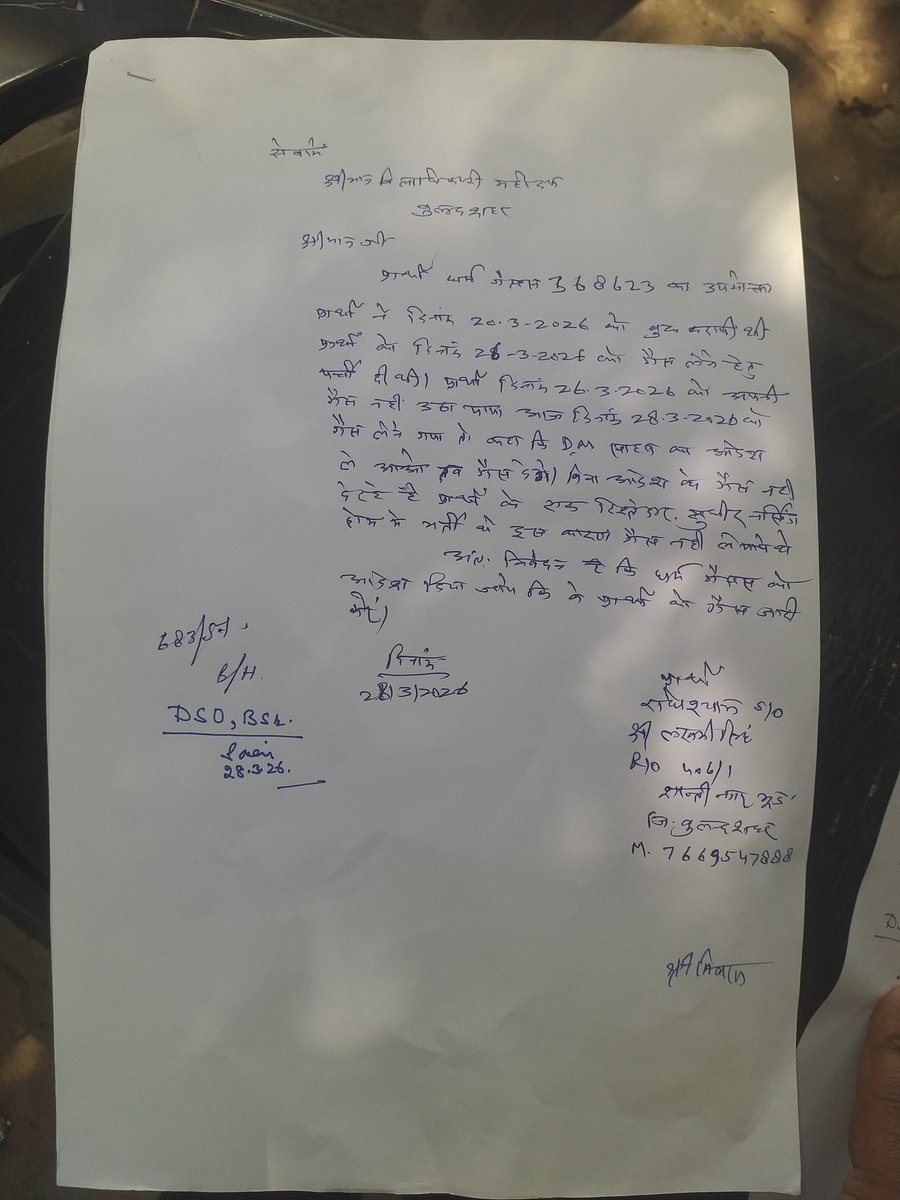 सेवामें
श्रीमान जिलाधिकारी महोदय
बुलन्दशहर
श्रीमान जी
प्रार्थी धर्म गैसस 368623 का उपभोक्ता
प्रार्थी ने दिनांक 20.3-2026 को बुक करायी थी
प्रार्थी को दिनांक 26-3-2026 को गैस लेने हेतु
पर्ची दी थी। प्रार्थी दिनांक 26.3.2026 को अपनी
गैस नही उठा पाया आज दिनांक 28.3-2026 को
गैस लेने गया तो कहा कि D.M साहब का आदेश
ले आओ तब गैस देगें। बिना आदेश के गैस नही
दे रहे है प्रार्थी के एक रिश्तेदार. सुधीर नर्सिंग
होम मे भर्ती थे इस कारण गैस नही ले पाये थे
अतः निवेदन है कि धर्म गैसस को
आदेश दिया जाये कि वे प्रार्थी को गैस जारी
करें।
दिनांक
28/3/2026
683/
B/H.
DSO, BSR.
28.3.26.
प्रार्थी
राधेश्याम S/O
श्री लक्ष्मी सिंह
R/O 406/1
शान्ती नगर भूड़
जि. बुलन्दशहर
M. 7669547888